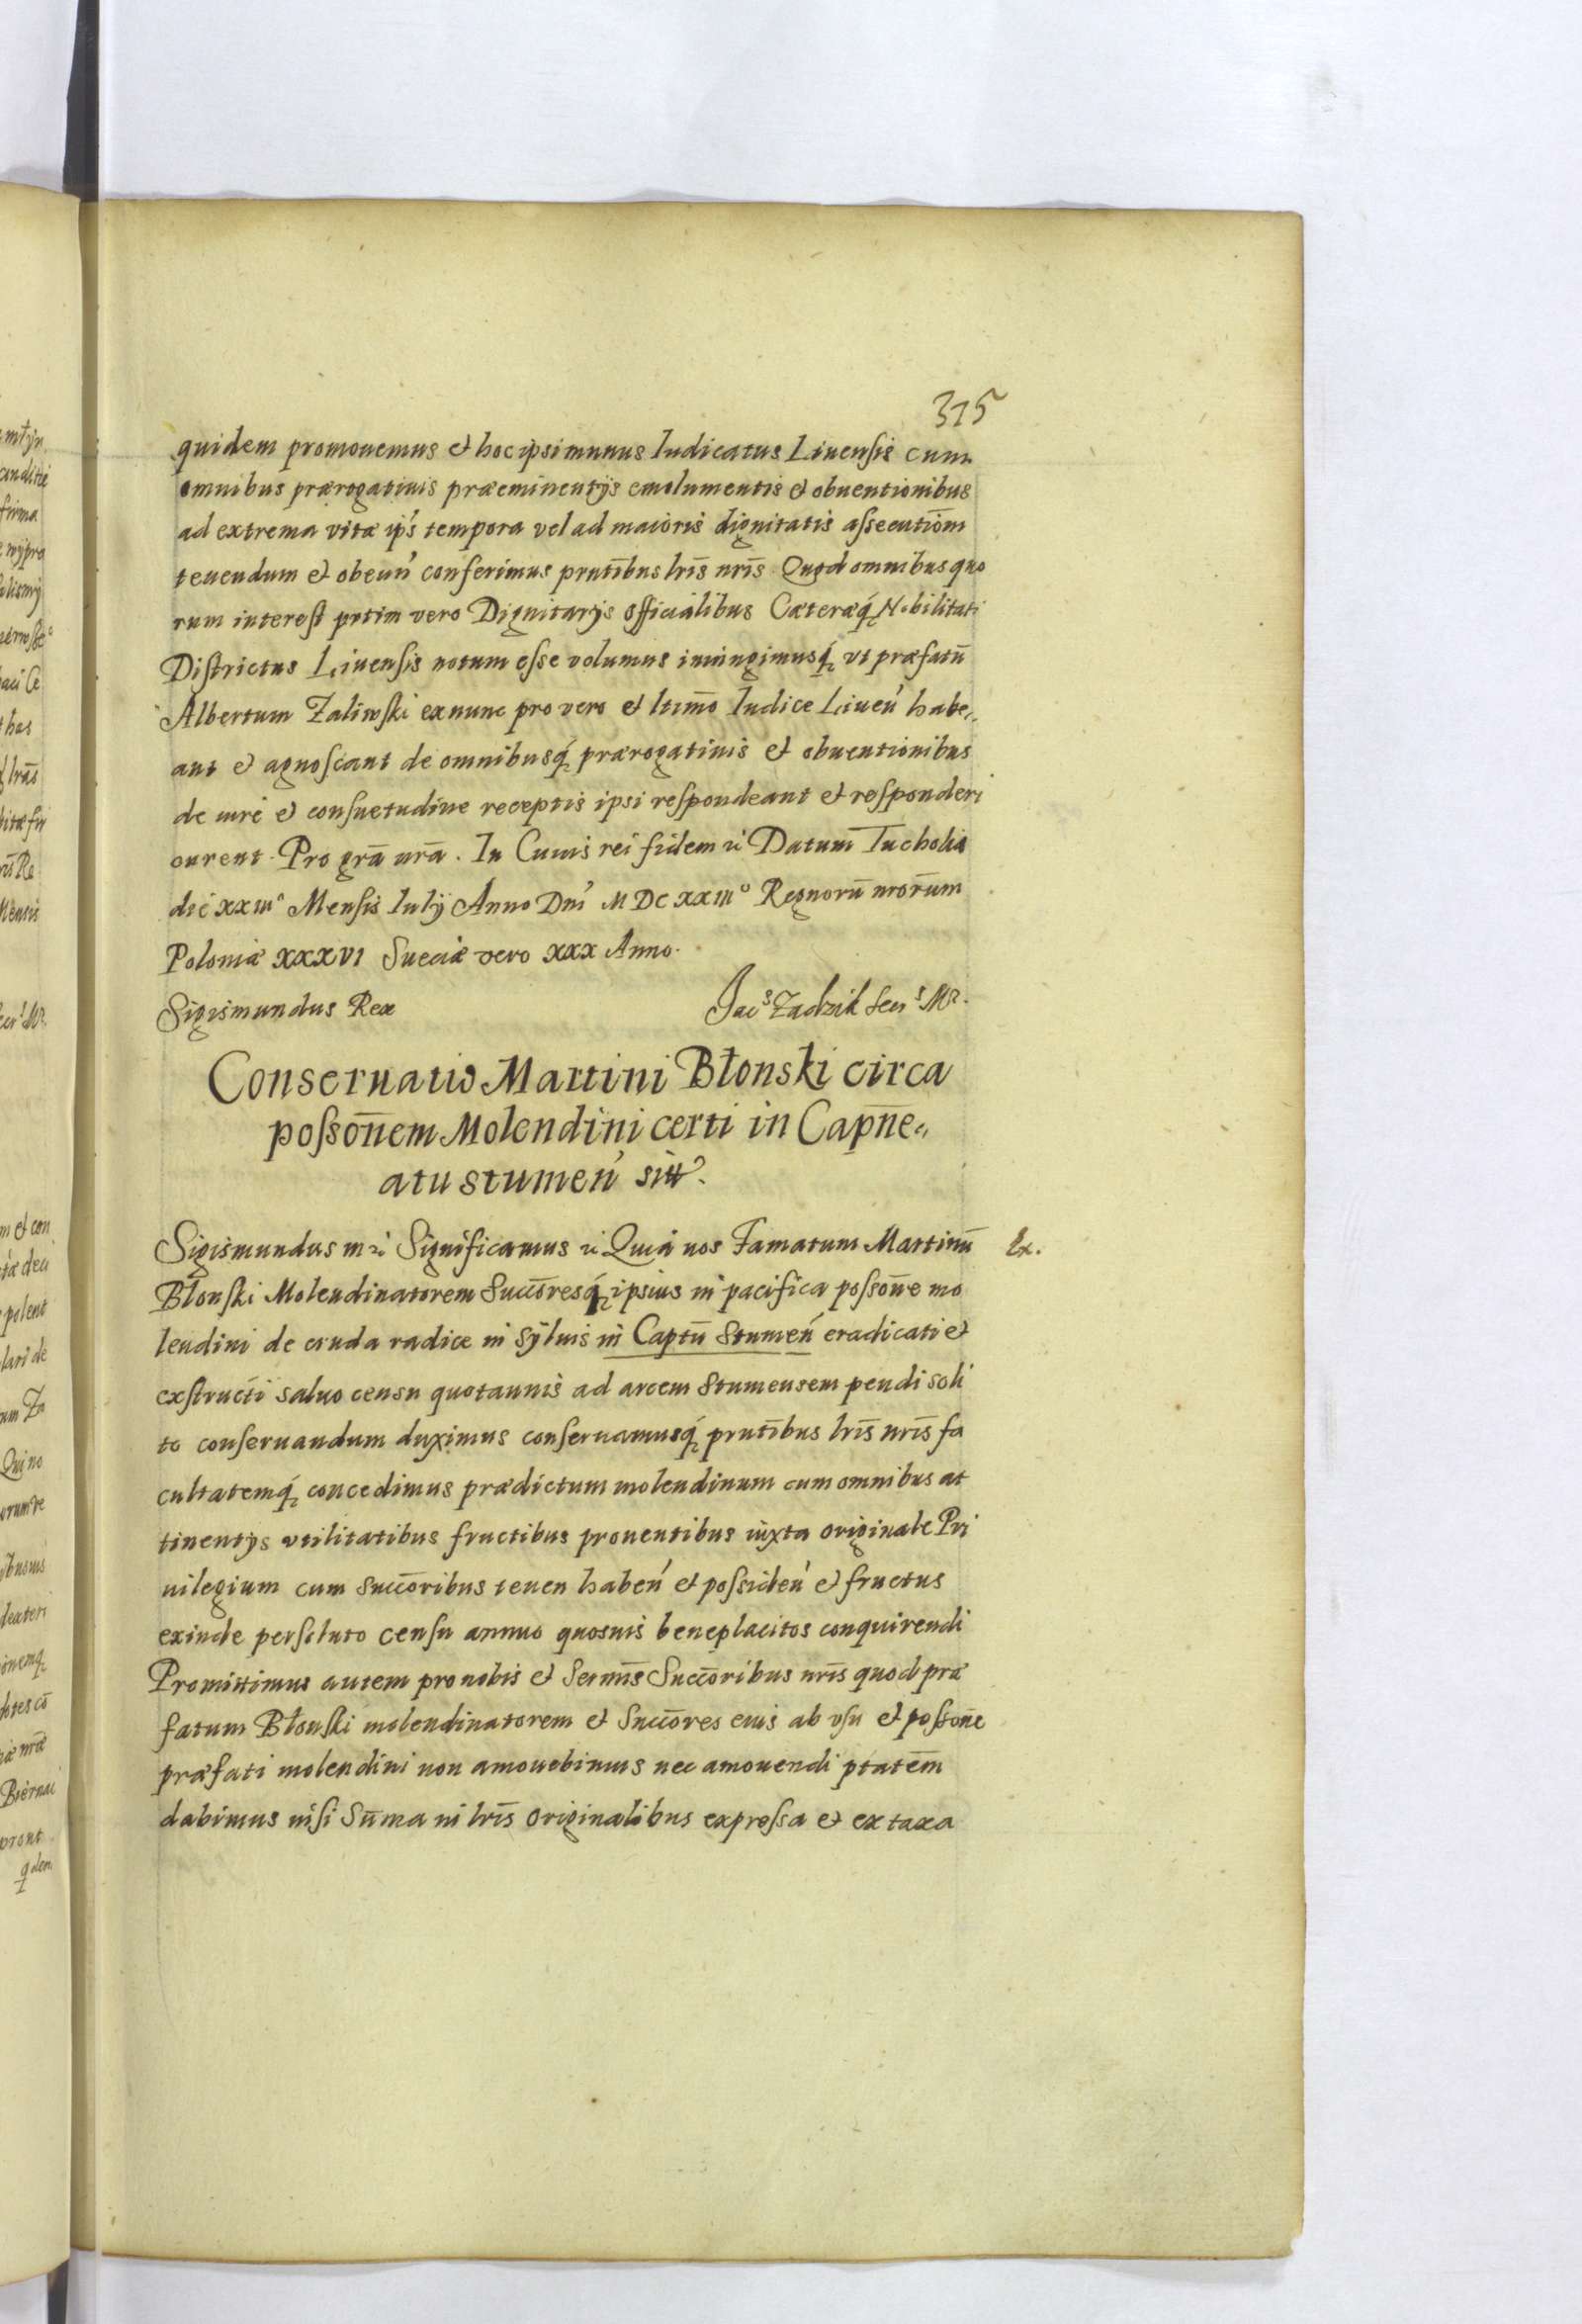 315
quidem promouemus et hoc ipsi munus Iudicatus Liuensis cum
omnibus prærogatiuis præeminentijs emolumentis et obuentionibus
ad extrema vitæ ip̃s tempora vel ad maioris dignitatis assecutiõm
tenendum et obeun̾ conferimus pr̃ntibus lr̃is nr̃is. Quod omnibus quo
rum interest pr̃tim vero Dignitarijs Officialibus Cæteræq́ Nobilitati
Districtus Liuensis notum esse volumus iniungimusq́ vt præfatū
Albertum Zaliwski ex nunc pro vero et ltim̃o Iudice Liuen̾ habe„
ant et agnoscant de omnibusq́ prærogatiuis et obuentionibus
de iure et consuetudine receptis ipsi respondeant et responderi
curent. Pro grã nrã. In Cuius rei fidem &c Datum Tucholiæ
die xxiiiº Mensis Iulij Anno Dn̾i M DC xxiiiº Regnorū nrõrum
Poloniæ XXXVI Sueciæ vero XXX Anno.
Sigismundus Rex
Jacˢ Zadzik Secrˢ Mʳ.
Conseruatio Martini Błonski circa
possoñem Molendini certi in Capñe„
atu stumen̾ sitt.
Sigismundus III &c Significamus &c Quia nos Famatum Martinū
Błonski Molendinatorem Succõresq́ ipsius in pacifica possoñe mo
lendini de cruda radice in syluis in Captū Stumen̾ eradicati et
exstructi saluo censu quotannis ad arcem Stumensem pendi soli
to conseruandum duximus conseruamusq́ pr̃ntibus lr̃is nr̃is fa
cultatemq́ concedimus prædictum molendinum cum omnibus at
tinentijs vtilitatibus fructibus prouentibus iuxta originale Pri
uilegium cum succõribus tenen haben̾ et possiden̾ et fructus
exinde persoluto censu annuo quosuis beneplacitos conquirendi
Promittimus autem pro nobis et Serm̃is Succõribus nr̃is quod præ
fatum Błonski molendinatorem et Succõres eius ab vsu et possoñe
præfati molendini non amouebimus nec amouendi ptatẽm
dabimus nisi Sum̃a in lr̃is originalibus expressa et ex taxa
Ex.